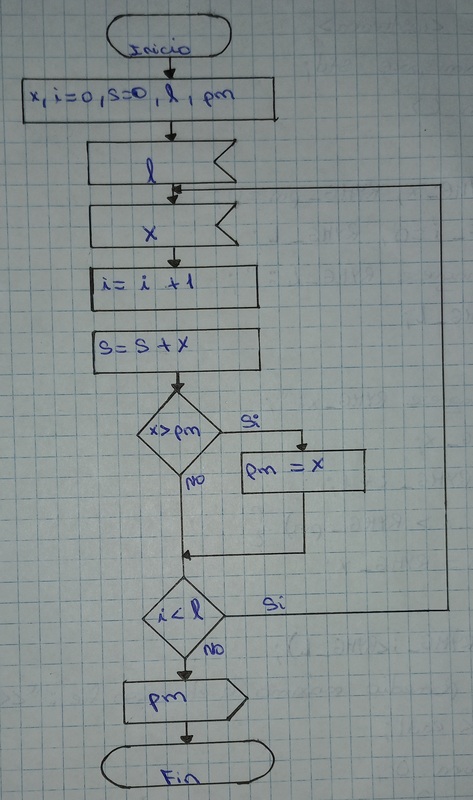 Inicio
x, i=0, s=0, l, pm
l
x
i= i +1
s= s + x
x>pm
Si
pm = x
NO
i< l
Si
NO
pm
Fin